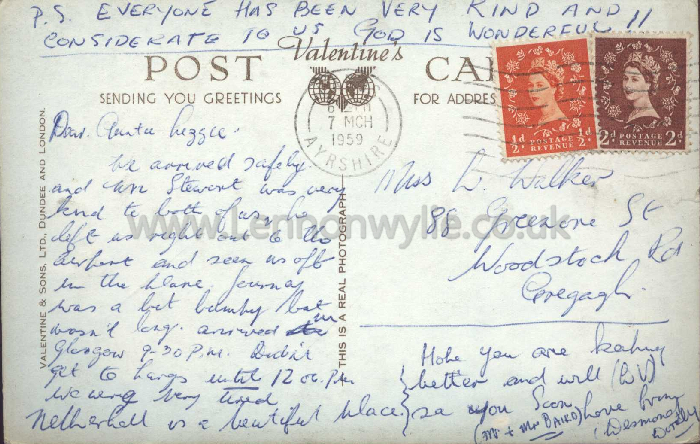 P.S. EVERYONE HAS BEEN VERY KIND AND
CONSIDERATE TO US GOD IS WONDERFUL !!
Valentine's
POST CA
SENDING YOU GREETINGS FOR ADDRES
7 MCH
1959
AYRSHIRE
½d ½d
POSTAGE REVENUE
2d 2d
POSTAGE REVENUE
VALENTINE & SONS, LTD., DUNDEE AND LONDON.
THIS IS A REAL PHOTOGRAPH
www.Lennonwylie.co.uk
Dear Auntie Lizzie.
We arrived safely
and Stewart was very
kind to both of us he
left us right out to the
airport and seen us off
in the plane. Journey
was a bit bumpy but
wasn't long. arrived in
Glasgow 9-30 P.M. Didn't
get to Largs until 12 oc. P.M.
we were very tired
Netherhall is a beautiful place.
Miss L. Walker
88 St
Woodstock Rd.
Cregagh.
Hope you are keeping
better and will (D.V)
see you Soon,
(Mr + Mrs BAIRD) love from
Desmond
Dorothy